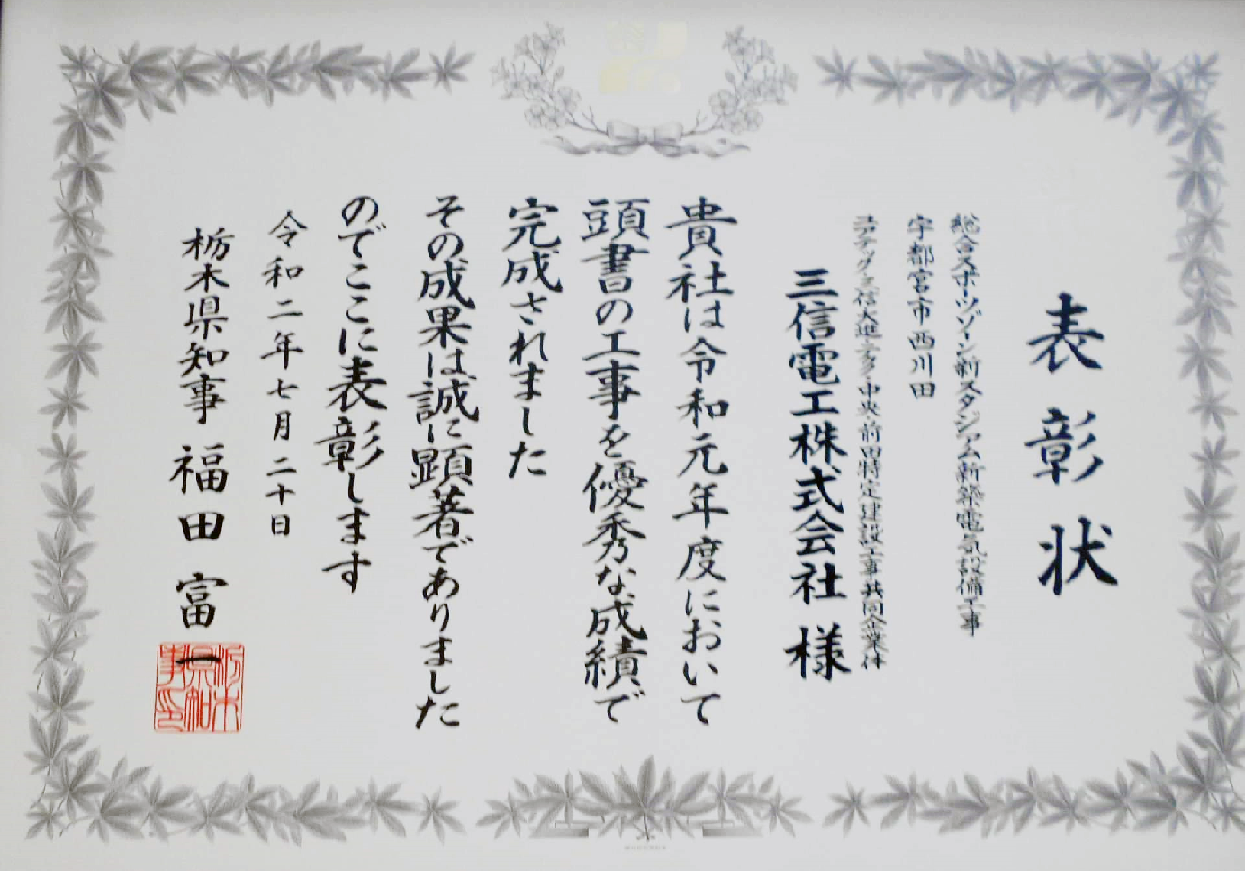 表彰状
総合スポーツゾーン新スタジアム新築電気設備工事
宇都宮市西川田
三信大進テクノ中央・前田特定建設工事共同企業体
三信電工株式会社 様
貴社は令和元年度において
頭書の工事を優秀な成績で
完成されました
その成果は誠に顕著でありました
のでここに表彰します
令和二年七月二十日
栃木県知事 福田富一
栃木県知事印